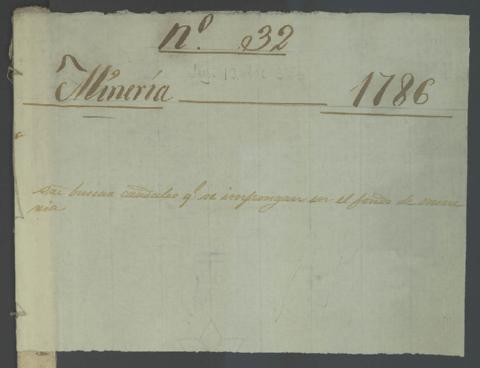 nº. 32
Minería 1786
Se buscan caudales qe. se impongan en el fondo de mine
ria